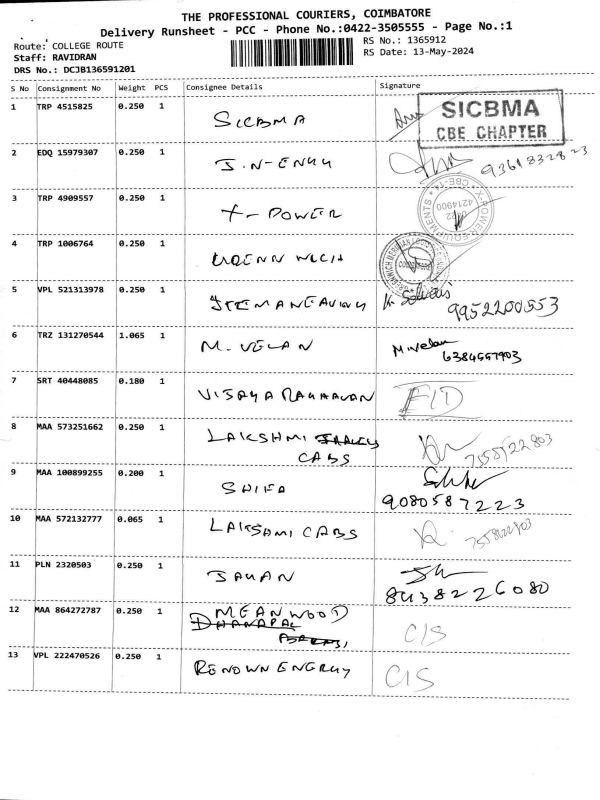 THE PROFESSIONAL COURIERS, COIMBATORE
Delivery Runsheet - PCC - Phone No.:0422-3505555 - Page No.:1
Route: COLLEGE ROUTE
Staff: RAVIDRAN
DRS No.: DCJB136591201
RS No.: 1365912
RS Date: 13-May-2024
S No Consignment No Weight PCS Consignee Details Signature
1 TRP 4515825 0.250 1 SICBMA
SICBMA
CBE CHAPTER
2 EDQ 15979307 0.250 1 9361832823
3 TRP 4909557 0.250 1 X-POWER
X-POWER EQUIPMENTS * CBE-14 *
0422
4214900
4 TRP 1006764 0.250 1
5 VPL 521313978 0.250 1 9952200553
6 TRZ 131270544 1.065 1 M.VELAN M.Velan
7 SRT 40448085 0.180 1 VIJAYA RAGHAVAN
8 MAA 573251662 0.250 1 LAKSHMI
CABS
9 MAA 100899255 0.200 1 SHIFA
9080587223
10 MAA 572132777 0.065 1 LAKSHMI CABS
11 PLN 2320503 0.250 1
8438226080
12 MAA 864272787 0.250 1 MEANWOOD
DHANAPAL
C/S
13 VPL 222470526 0.250 1 RENOWN ENERGY C/S